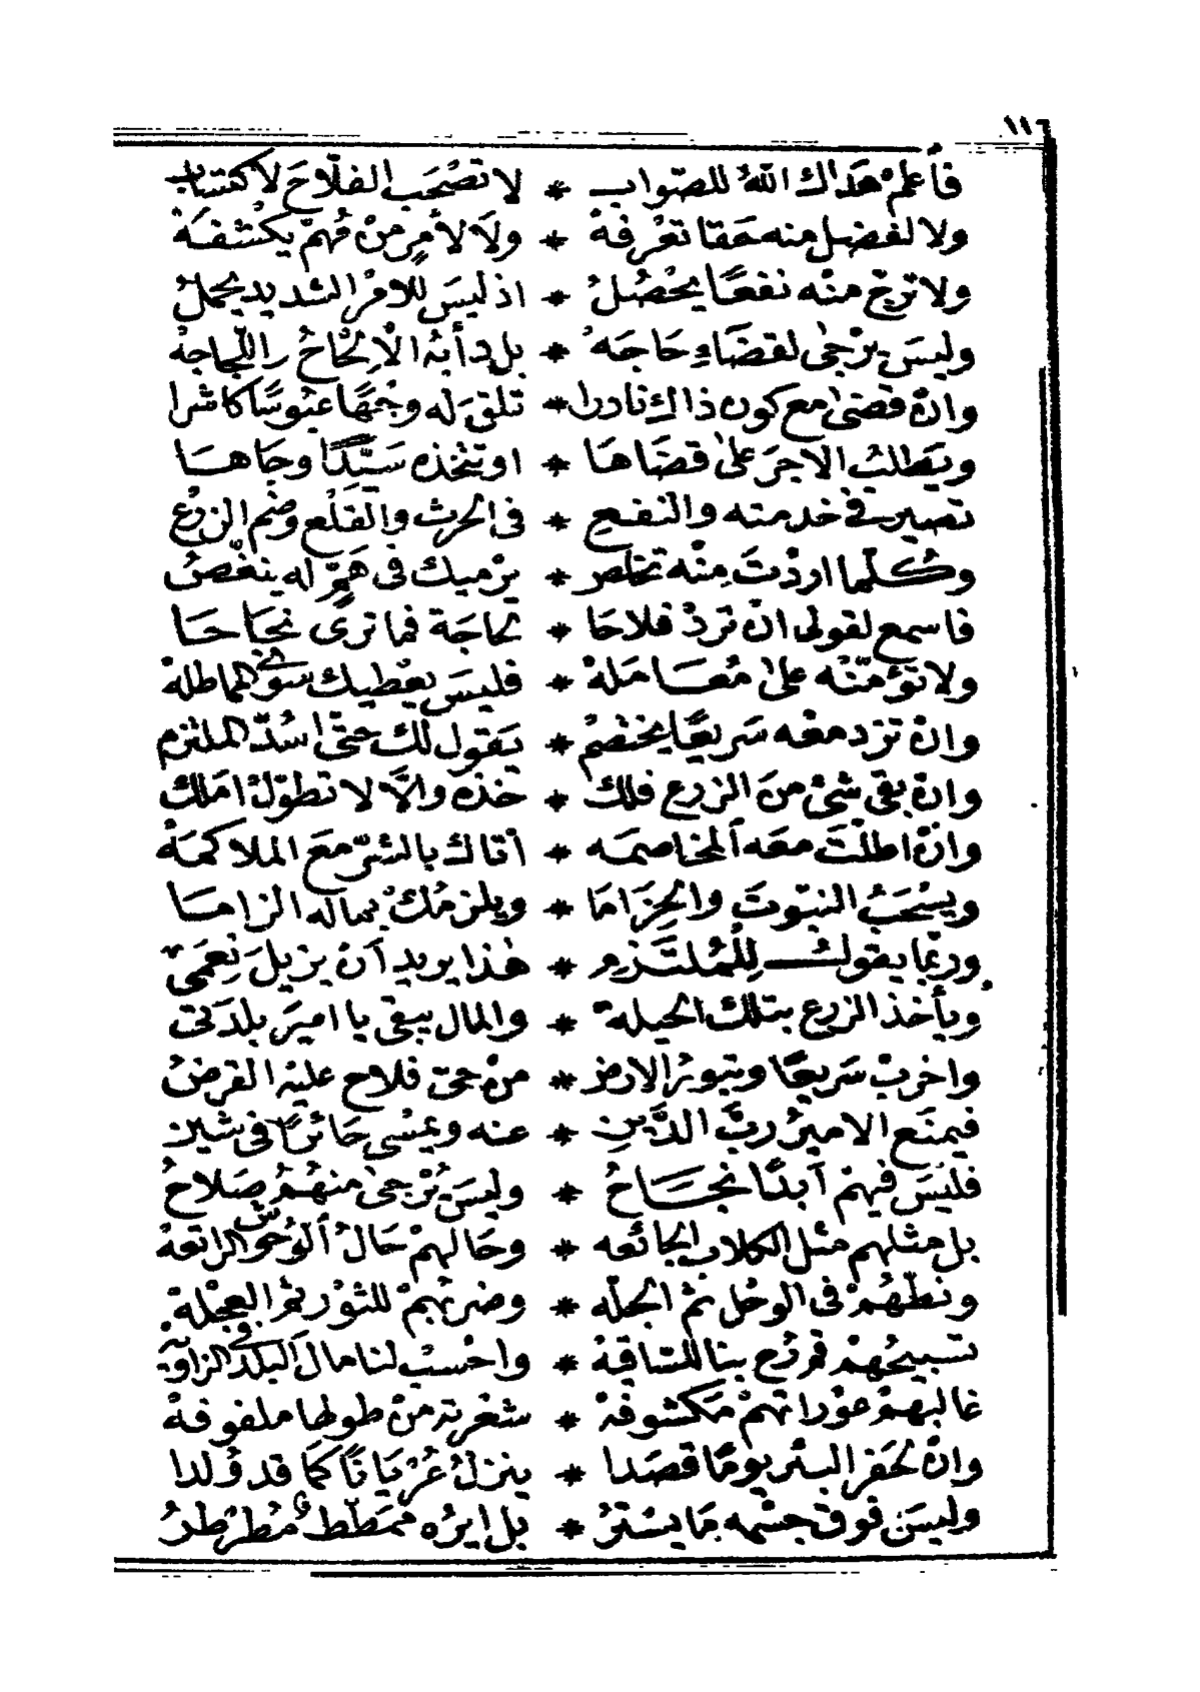 ١١٦
فأعلم هداك الله للصواب * لا تصحب الفلاح لاكتساب
ولا لفضل منه حقا تعرفه * ولا لأمر من مهم يكشفه
ولا ترج منه نفعا يحصل * اذ ليس للامر الشديد يحمل
وليس يرجى لقضاء حاجه * بل دأبه الالحاح واللجاجة
وان قضى مع كون ذاك نادرا * تلقى له وجها عبوسا كاشرا
ويطلب الاجر على قضاها * او تتخذه سيدا وجاها
تصير في خدمته والنفع * فى الحرث والقلع وضم الزرع
وكلما اردت منه تخلص * يرميك فى هم له ينغص
فاسمع لقولى ان ترد فلاحا * لحاجة فما ترى نجاحا
ولا تؤمنه على معاملة * فليس يعطيك سوى المماطلة
وان تزد معه سريعا يختصم * يقول لك حتى اسد الملتزم
وان بقى شئ من الزرع فلك * خذه والا لا تطول املك
وان اطلت معه المخاصمه * أتاك بالشر مع الملاكمة
ويسحب النبوت والحزاما * ويلزمك بماله الزاما
وربما يقول للملتزم * هذا يريد أن يزيل نعمى
ويأخذ الزرع بتلك الحيلة * والمال يبقى يا امير بلدتى
واخرب سريعا وتبور الارض * من حق فلاح عليه القرض
فيمنع الامير رب الدين * عنه ويمسى حائرا فى شين
فليس فيهم أبدا نجاح * وليس يرجى منهم صلاح
بل مثلهم مثل الكلاب الجائعه * وحالهم حال الوحوش الراتعة
ونطهم فى الوحل ثم الجله * وضربهم للثور ثم العجلة
تسبيحهم قم زع بنا للساقية * واحسب لنا مال البلد والزاوية
غالبهم عوراتهم مكشوفة * شعرته من طولها ملفوفة
وان لحفر البئر يوما قصدا * ينزل عريانا كما قد ولدا
وليس فوق جسمه ما يستر * بل ايره ممطط مطرطر